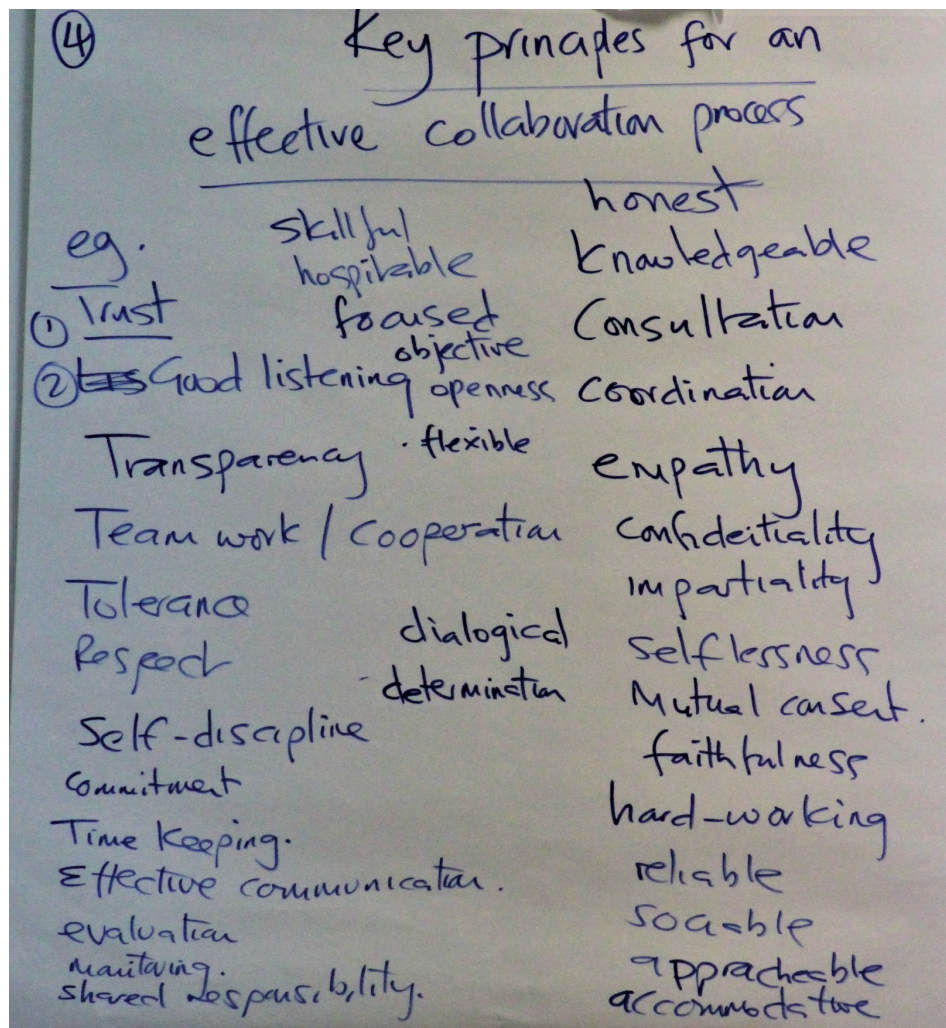 ④ Key principles for an
effective collaboration process
eg.
① Trust
② Good listening
Transparency
Team work / Cooperation
Tolerance
Respect
Self-discipline
Commitment
Time Keeping.
Effective communication.
evaluation
monitoring.
shared responsibility.
skillful
hospitable
focused
objective
openness
· flexible
dialogical
- determination
honest
Knowledgeable
Consultation
Coordination
empathy
Confideitiality
impartiality
Selflessness
Mutual consent.
faithfulness
hard-working
reliable
sociable
appracheable
accommodative